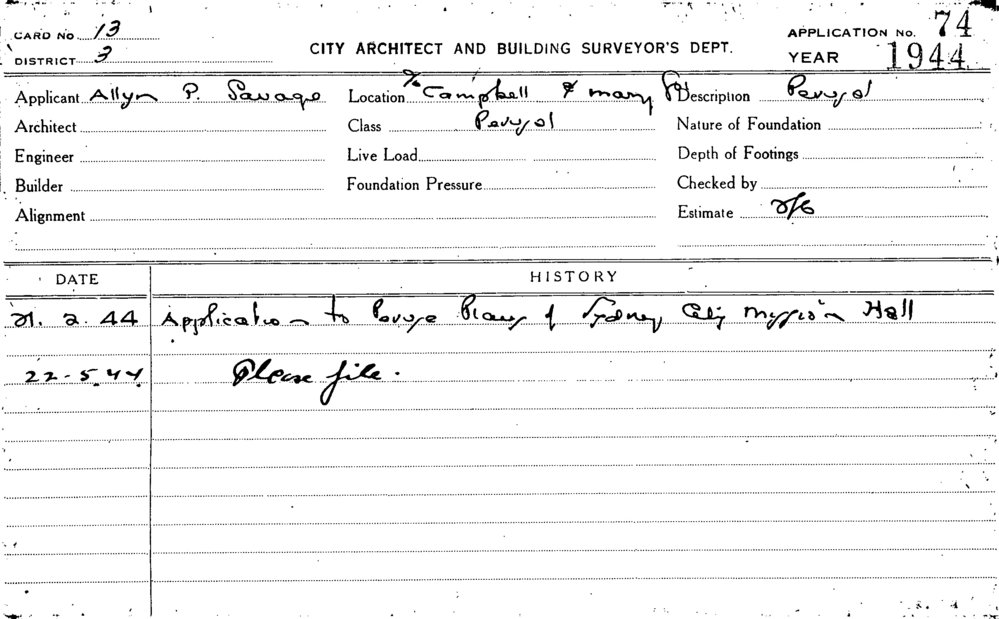 CARD No 13
DISTRICT 3
CITY ARCHITECT AND BUILDING SURVEYOR'S DEPT.
APPLICATION No. 74
YEAR 1944
Applicant Allyn P. Savage
Location c/o Campbell & Mary Sts
Description Perusal
Architect
Class Perusal
Nature of Foundation
Engineer
Live Load
Depth of Footings
Builder
Foundation Pressure
Checked by
Alignment
Estimate 2/6
DATE HISTORY
21. 2. 44 Application to Peruse Plans of Sydney City Mission Hall
22-5.44 Please file.